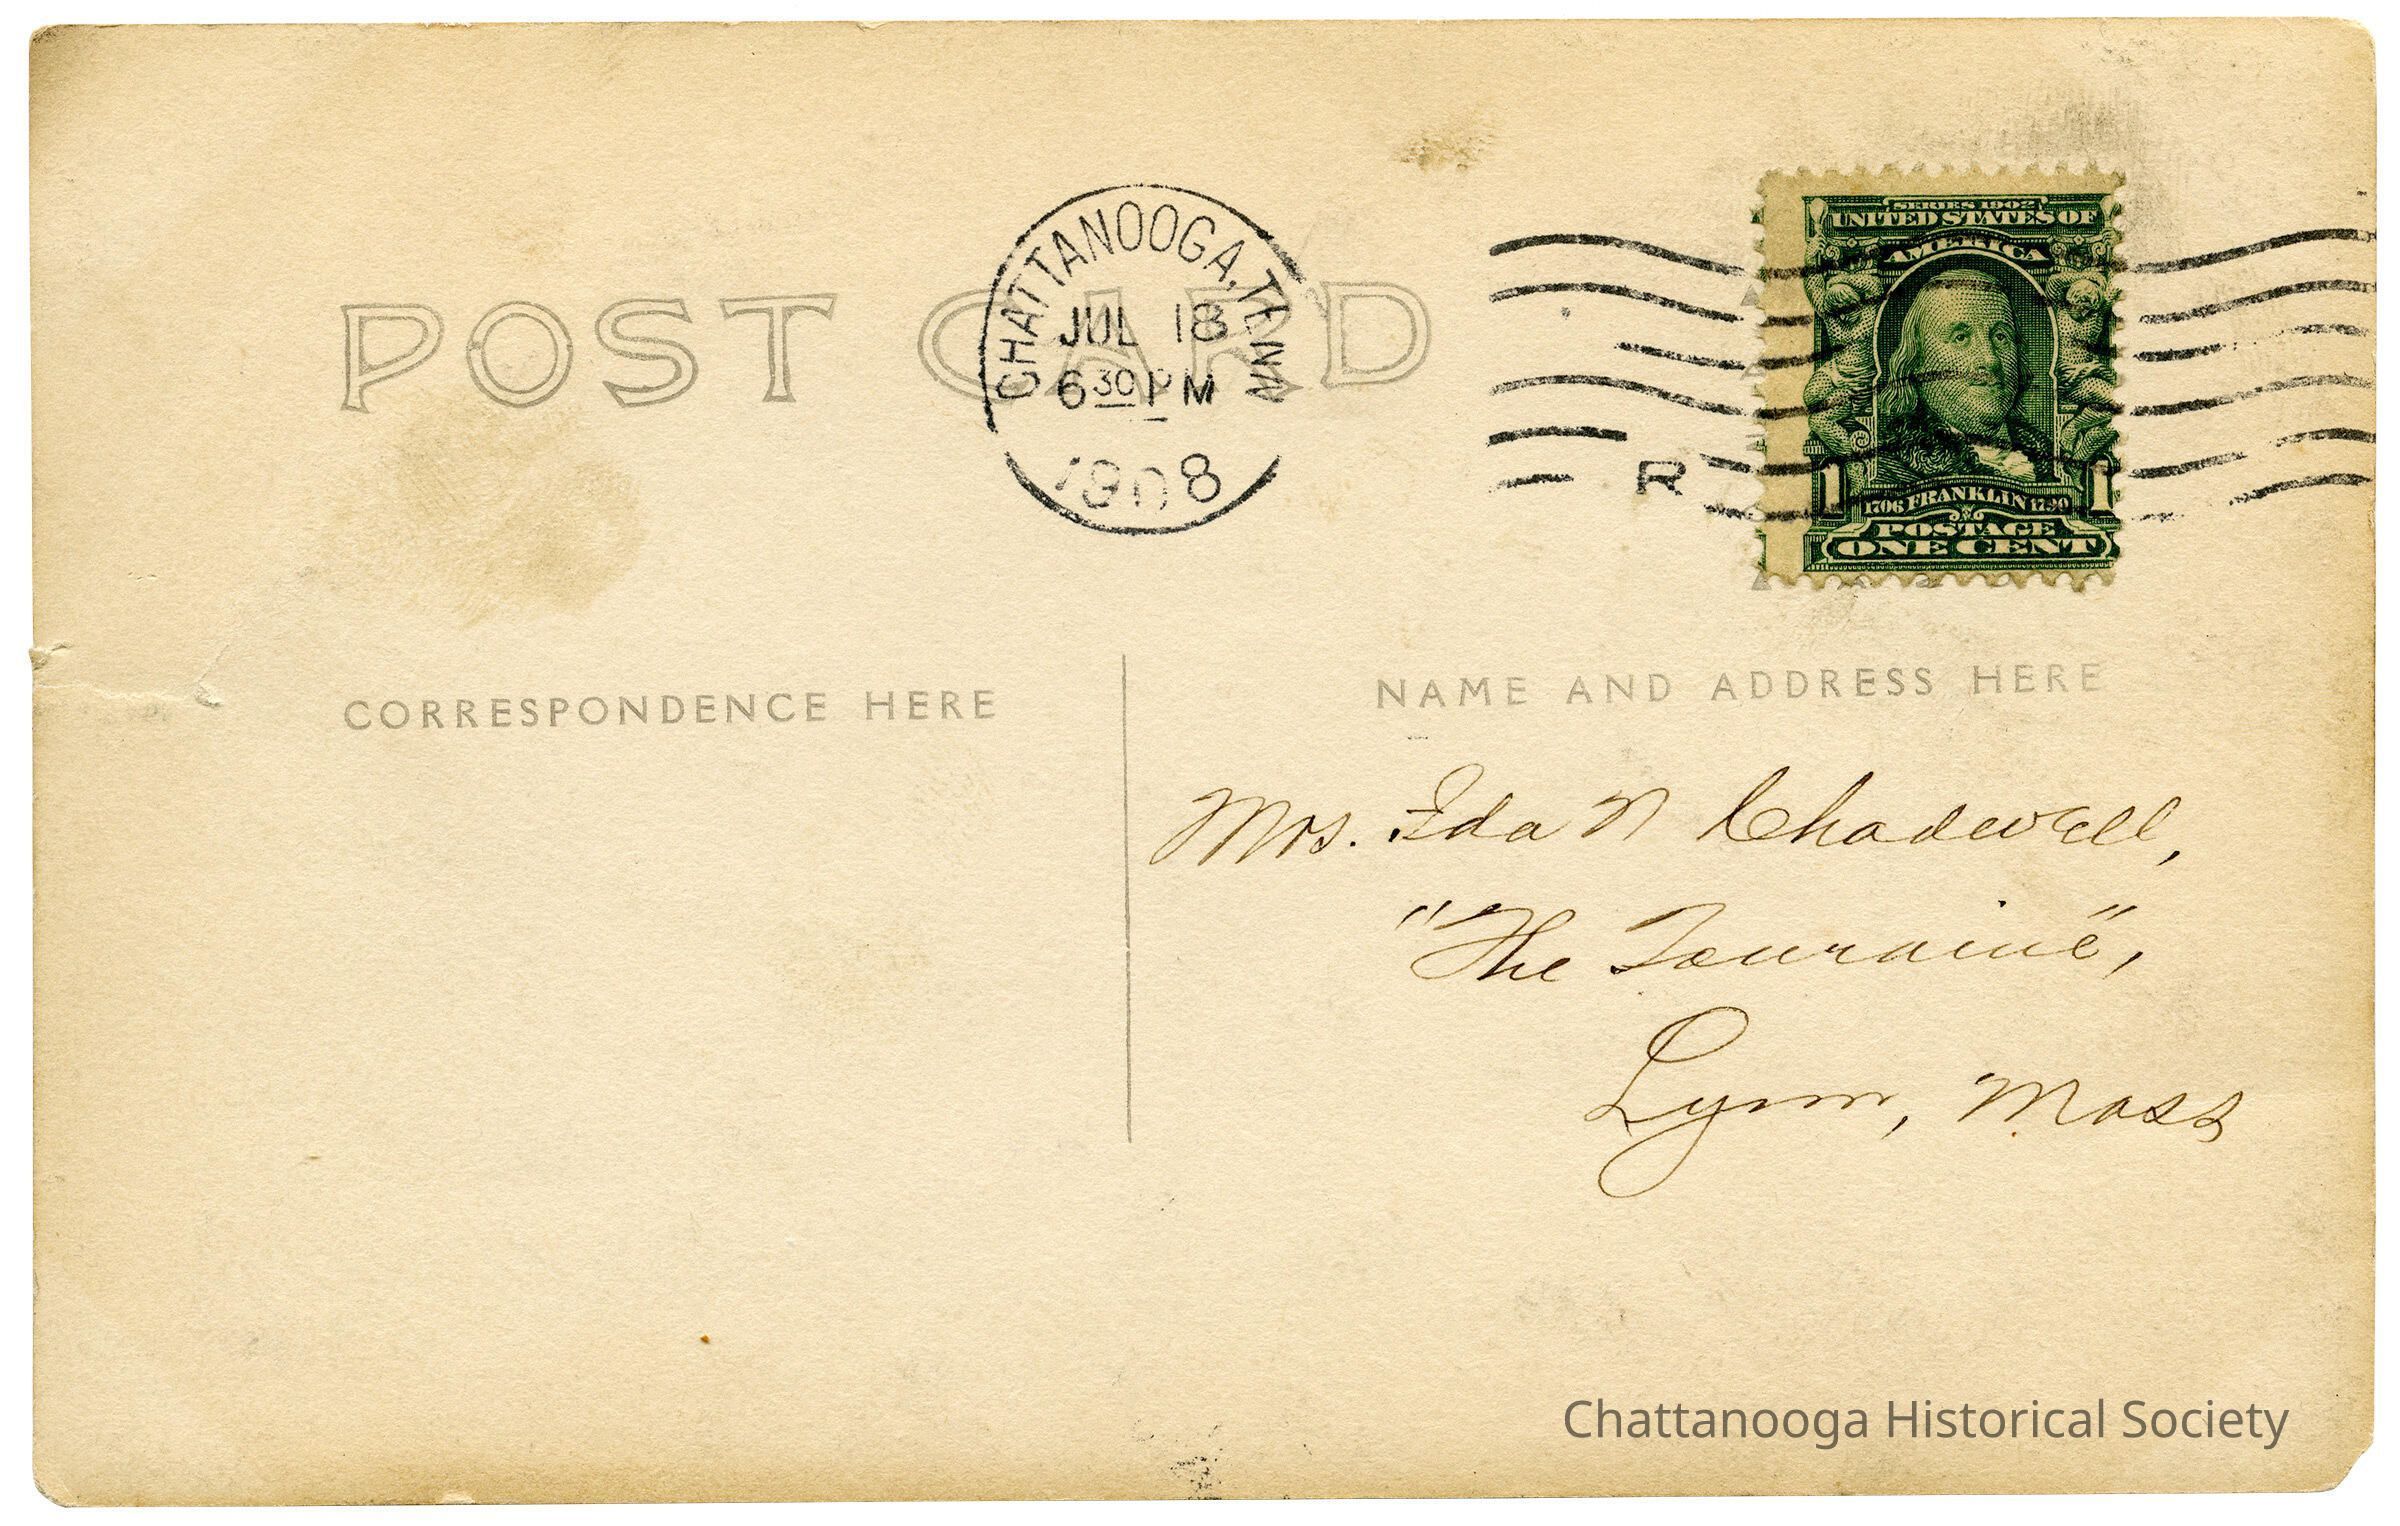 POST CARD
CHATTANOOGA, TENN.
JUL 18
6 30 PM
1908
R
SERIES 1902
UNITED STATES OF
AMERICA
1706 FRANKLIN 1790
1 1
POSTAGE
ONE CENT
CORRESPONDENCE HERE
NAME AND ADDRESS HERE
Mrs. Ida N Chadwell,
"The Touraine",
Lynn, Mass
Chattanooga Historical Society